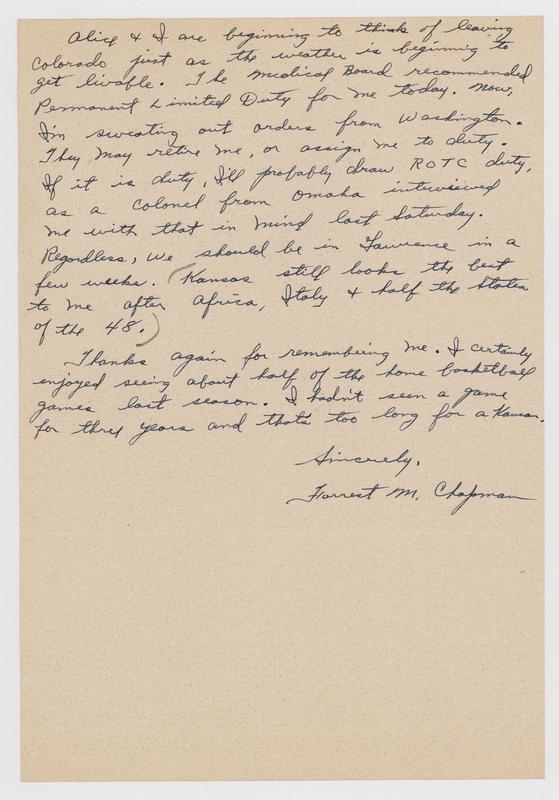 Alice & I are beginning to think of leaving
Colorado just as the weather is beginning to
get livable. The Medical Board recommended
Permanent Limited Duty for me today. Now,
I'm sweating out orders from Washington.
They may retire me, or assign me to duty.
If it is duty, I'll probably draw ROTC duty,
as a colonel from Omaha interviewed
me with that in mind last Saturday.
Regardless, we should be in Lawrence in a
few weeks. (Kansas still looks the best
to me after Africa, Italy & half the States
of the 48.)
Thanks again for remembering me. I certainly
enjoyed seeing about half of the home basketball
games last season. I hadn't seen a game
for three years and that's too long for a Kansan.
Sincerely,
Forrest M. Chapman